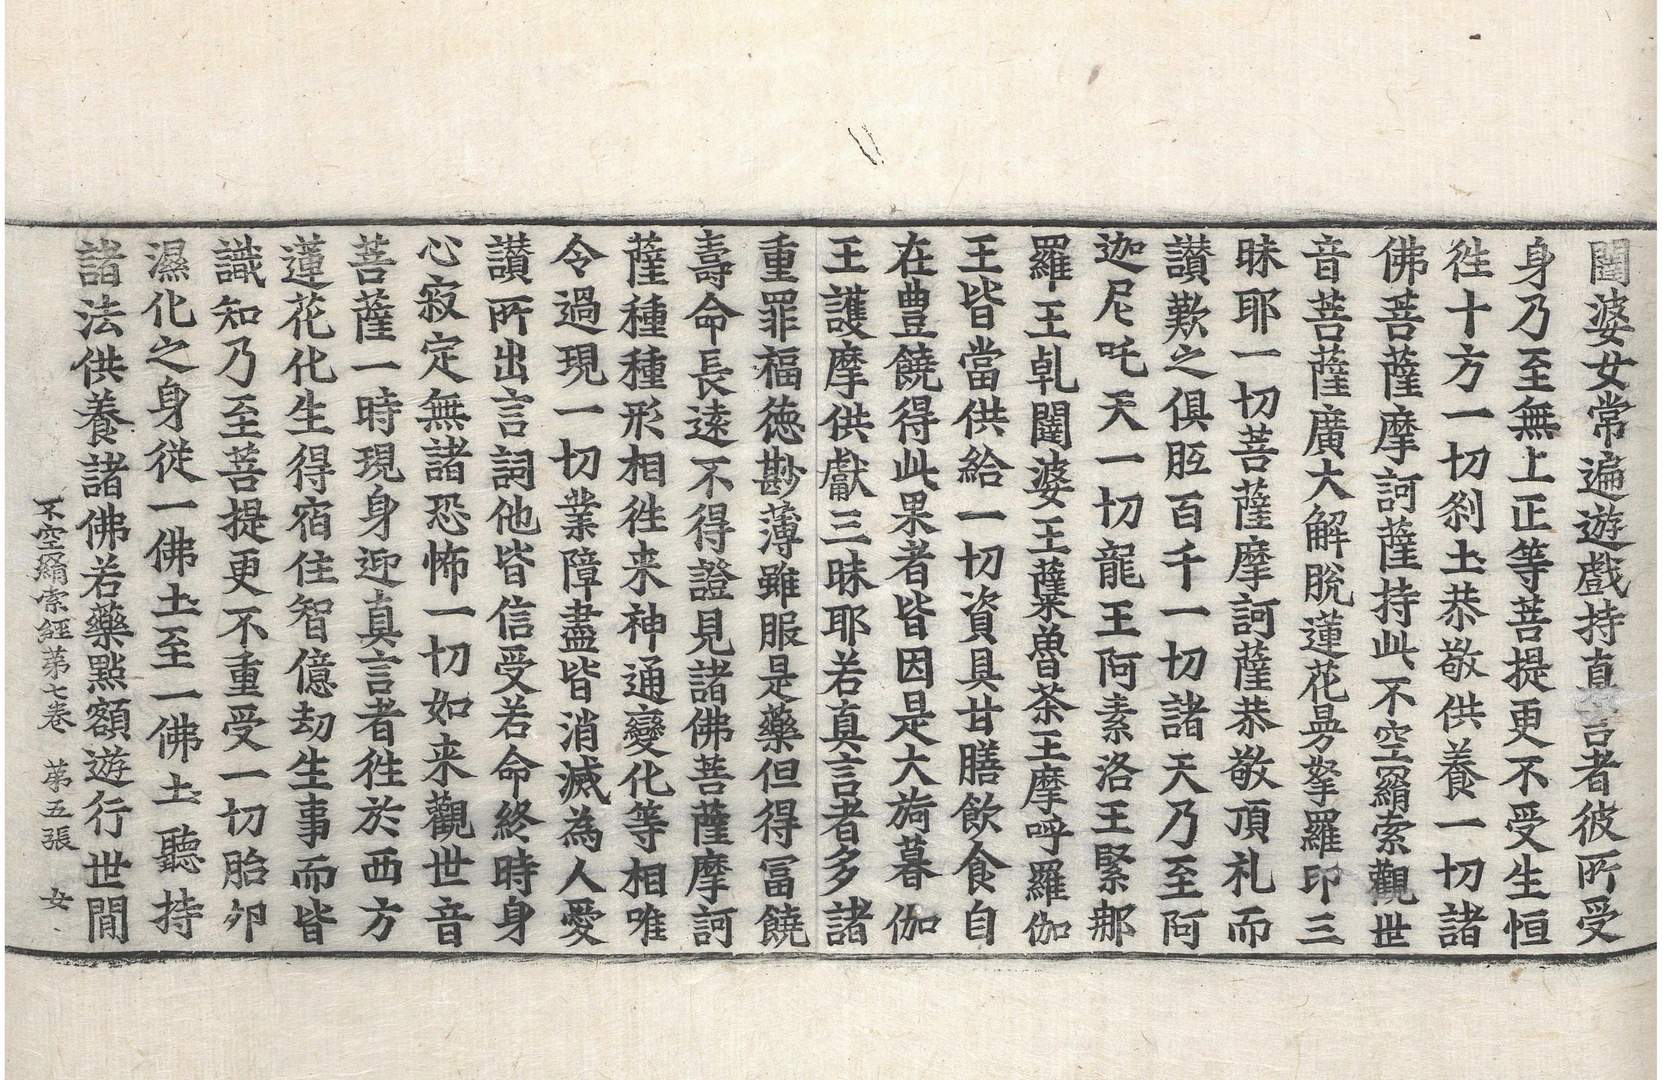 闥婆女常遍遊戲持真言者彼所受
身乃至無上正等菩提更不受生恒
徃十方一切刹土恭敬供養一切諸
佛菩薩摩訶薩持此不空羂索觀世
音菩薩廣大解脫蓮花曼拏羅印三
昧耶一切菩薩摩訶薩恭敬頂礼而
讃歎之俱胝百千一切諸天乃至阿
迦尼吒天一切龍王阿素洛王緊那
羅王乹闥婆王蘖魯茶王摩呼羅伽
王皆當供給一切資具甘膳飲食自
在豊饒得此果者皆因是大旖暮伽
王護摩供獻三昧耶若真言者多諸
重罪福徳尠薄雖服是藥但得冨饒
壽命長遠不得證見諸佛菩薩摩訶
薩種種形相徃来神通變化等相唯
令過現一切業障盡皆消滅為人愛
讃所出言詞他皆信受若命終時身
心寂定無諸恐怖一切如来觀世音
菩薩一時現身迎真言者徃於西方
蓮花化生得宿住智億劫生事而皆
識知乃至菩提更不重受一切胎夘
濕化之身從一佛土至一佛土聽持
諸法供養諸佛若藥點額遊行世間
不空羂索經第七卷 第五張 女